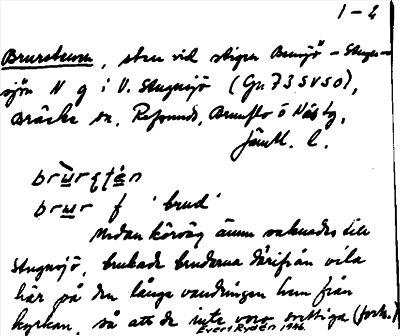 1-2
Brurstenen, sten vid stigen Bensjö - Stugu-
sjön N g i V. Stugusjö (Gn 73SV50),
Bräcke sn, Refsunds, Brunflo o Näs tg,
Jämtl. l.
brur f 'brud'
Medan körväg ännu saknades till
Stugusjö, brukade brudarna därifrån vila
här på den långa vandringen hem från
kyrkan, så att de inte voro svettiga (forts.)
Evert Rydén 1946